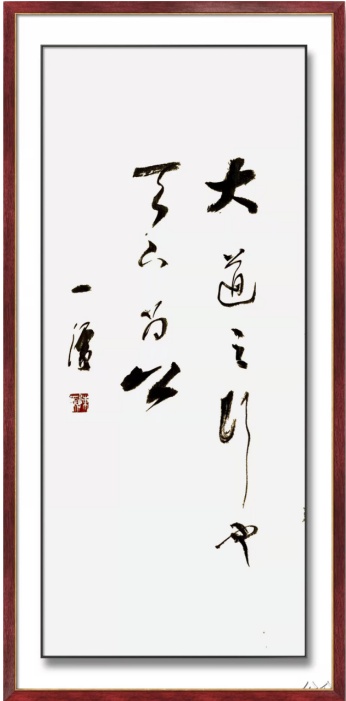 大道之行也
天下為公
一廬